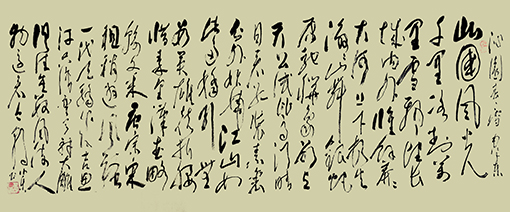 沁園春 雪 毛澤東
北國風光
千里冰封萬
里雪飘望长
城内外惟餘莽
莽大河上下顿失
滔滔山舞銀蛇
原驰蜡象欲与
天公试比高须晴
日看红装素裹
分外妖娆江山如
此多娇引無
数英雄竞折腰
惜秦皇漢武略
输文采唐宗宋
祖稍逊风骚
一代天骄成吉思
汗只识弯弓射大雕
俱往矣数风流人
物还看今朝